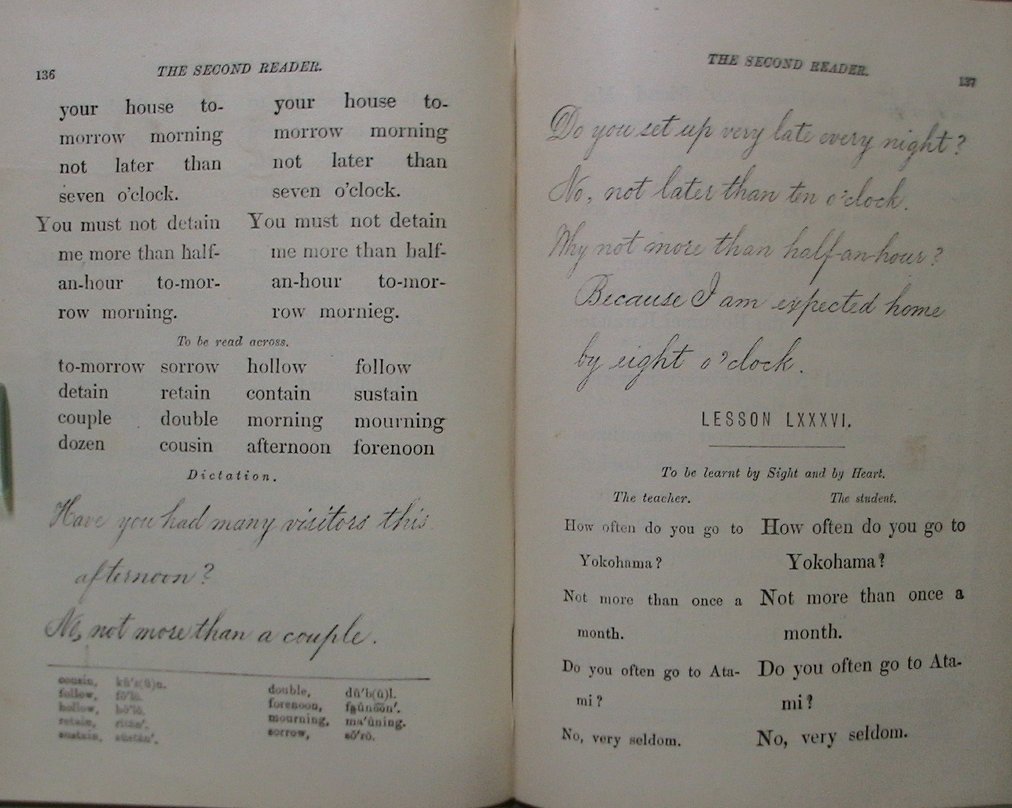 136
THE SECOND READER.
your house to-
morrow morning
not later than
seven o'clock.
You must not detain
me more than half-
an-hour to-mor-
row morning.
your house to-
morrow morning
not later than
seven o'clock.
You must not detain
me more than half-
an-hour to-mor-
row mornieg.
To be read across.
to-morrow sorrow hollow follow
detain retain contain sustain
couple double morning mourning
dozen cousin afternoon forenoon
Dictation.
Have you had many visitors this
afternoon?
No, not more than a couple.
cousin,
follow,
hollow,
retain,
sustain,
double,
forenoon,
mourning,
sorrow,
THE SECOND READER.
137
Do you set up very late every night?
No, not later than ten o'clock.
Why not more than half-an-hour?
Because I am expected home
by eight o'clock.
LESSON LXXXVI.
To be learnt by Sight and by Heart.
The teacher.
How often do you go to
Yokohama?
Not more than once a
month.
Do you often go to Ata-
mi?
No, very seldom.
The student.
How often do you go to
Yokohama?
Not more than once a
month.
Do you often go to Ata-
mi?
No, very seldom.